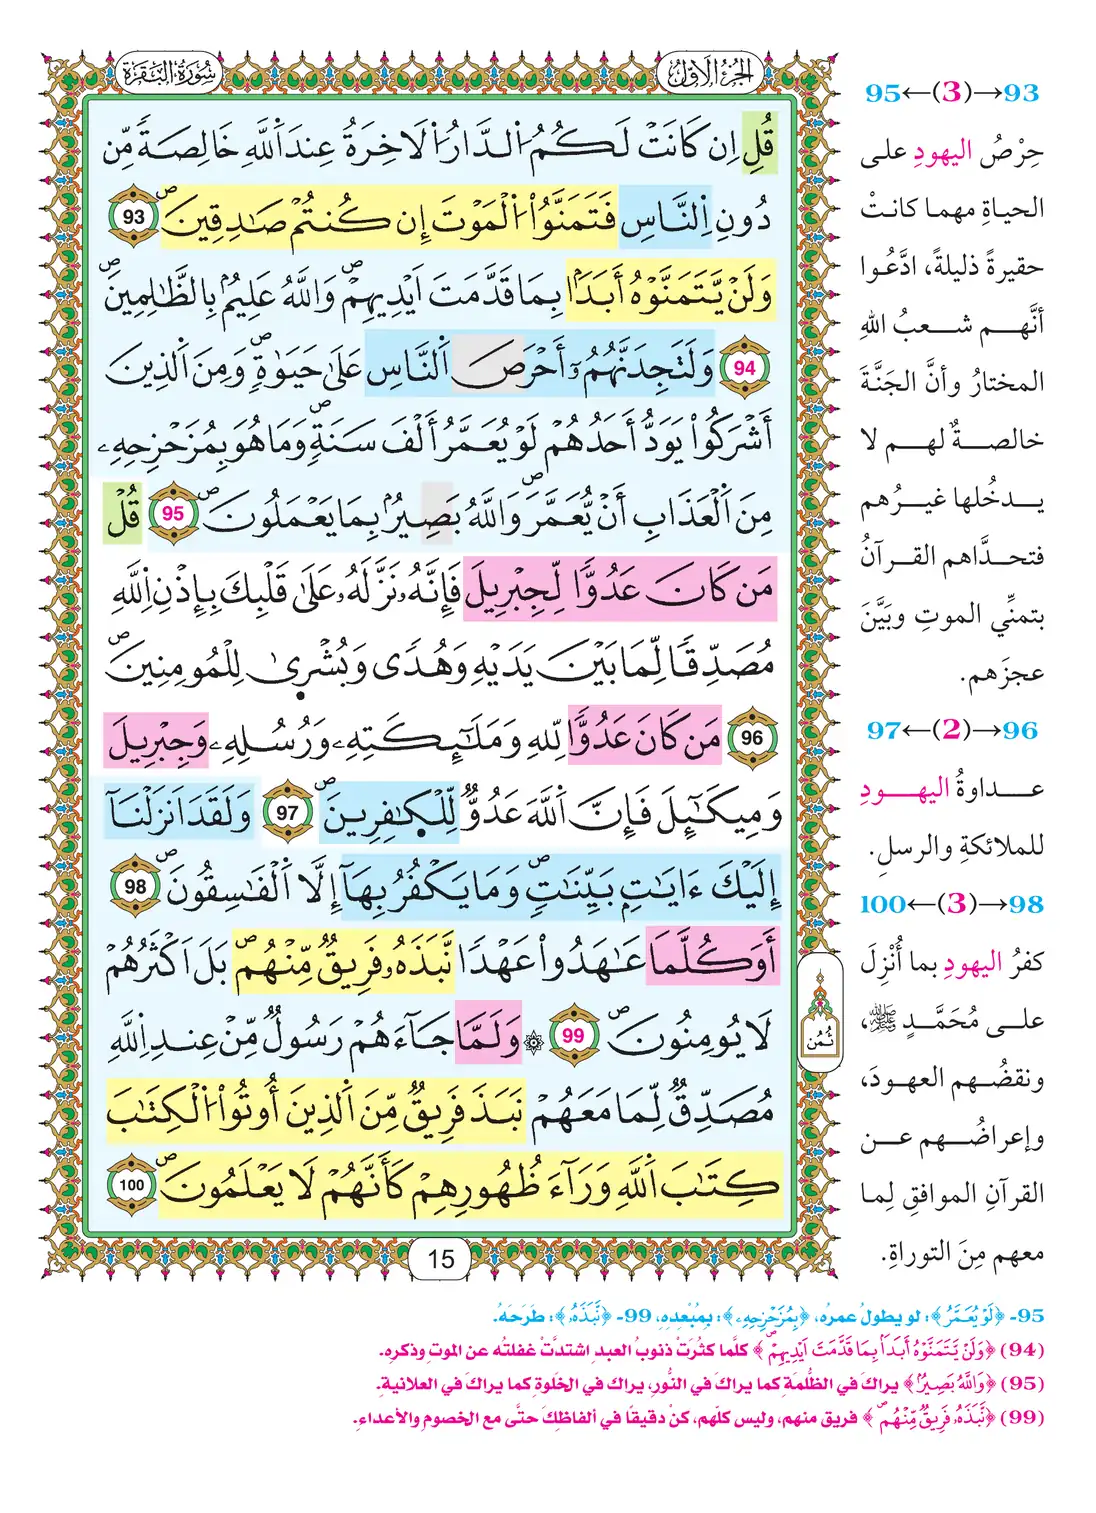 الجزء الأول
سورة البقرة
قُلِ اِن كَانَتْ لَكُمُ اُ۬لدَّارُ اُ۬لَاخِرَةُ عِندَ اَ۬للَّهِ خَالِصَةٗ مِّن
دُونِ اِ۬لنَّاسِ فَتَمَنَّوُاْ اُ۬لْمَوْتَ إِن كُنتُمْ صَٰدِقِينَۖ 93
وَلَنْ يَّتَمَنَّوْهُ أَبَدَاَۢ بِمَا قَدَّمَتَ اَيْدِيهِمْۖ وَاللَّهُ عَلِيمُۢ بِالظَّٰلِمِينَۖ
94 وَلَتَجِدَنَّهُمُۥٓ أَحْرَصَ اَ۬لنَّاسِ عَلَىٰ حَيَوٰةٖۖ وَمِنَ اَ۬لذِينَ
أَشْرَكُواْ يَوَدُّ أَحَدُهُمْ لَوْ يُعَمَّرُ أَلْفَ سَنَةٖۖ وَمَا هُوَ بِمُزَحْزِحِهِۦ
مِنَ اَ۬لْعَذَابِ أَنْ يُّعَمَّرَۖ وَاللَّهُ بَصِيرُۢ بِمَا يَعْمَلُونَۖ 95 قُلْ
مَن كَانَ عَدُوّٗا لِّجِبْرِيلَ فَإِنَّهُۥ نَزَّلَهُۥ عَلَىٰ قَلْبِكَ بِإِذْنِ اِ۬للَّهِ
مُصَدِّقٗا لِّمَا بَيْنَ يَدَيْهِ وَهُدٗى وَبُشْر۪ىٰ لِلْمُومِنِينَۖ
96 مَن كَانَ عَدُوّٗا لِّلهِ وَمَلَٰٓئِكَتِهِۦ وَرُسُلِهِۦ وَجِبْرِيلَ
وَمِيكَٰٓئِلَ فَإِنَّ اَ۬للَّهَ عَدُوّٞ لِّلْكٰ۪فِرِينَۖ 97 وَلَقَدَ اَنزَلْنَآ
إِلَيْكَ ءَايَٰتِۢ بَيِّنَٰتٖۖ وَمَا يَكْفُرُ بِهَآ إِلَّا اَ۬لْفَٰسِقُونَۖ 98
أَوَكُلَّمَا عَٰهَدُواْ عَهْدٗا نَّبَذَهُۥ فَرِيقٞ مِّنْهُمۖ بَلَ اَكْثَرُهُمْ
لَا يُومِنُونَۖ 99 ۞ وَلَمَّا جَآءَهُمْ رَسُولٞ مِّنْ عِندِ اِ۬للَّهِ
مُصَدِّقٞ لِّمَا مَعَهُمْ نَبَذَ فَرِيقٞ مِّنَ اَ۬لذِينَ أُوتُواْ اُ۬لْكِتَٰبَ
كِتَٰبَ اَ۬للَّهِ وَرَآءَ ظُهُورِهِمْ كَأَنَّهُمْ لَا يَعْلَمُونَۖ 100
ثُمُن
15
93→(3)←95
حِرْصُ اليهودِ على
الحياةِ مهما كانتْ
حقيرةً ذليلةً، ادَّعُوا
أنَّهم شعبُ اللهِ
المختارُ وأنَّ الجَنَّةَ
خالصةٌ لهم لا
يدخُلها غيرُهم
فتحدَّاهم القرآنُ
بتمنِّي الموتِ وبَيَّنَ
عجزَهم.
96→(2)←97
عداوةُ اليهودِ
للملائكةِ والرسلِ.
98→(3)←100
كفرُ اليهودِ بما أُنْزِلَ
على مُحَمَّدٍ ﷺ،
ونقضُهم العهودَ،
وإعراضُهم عن
القرآنِ الموافقِ لِما
معهم مِنَ التوراةِ.
95- ﴿لَوْ يُعَمَّرُ﴾: لو يطولُ عمرُه، ﴿بِمُزَحْزِحِهِۦ﴾: بِمُبْعدِهِ، 99- ﴿نَّبَذَهُۥ﴾: طَرَحَهُ.
(94) ﴿وَلَنْ يَّتَمَنَّوْهُ أَبَدَاَۢ بِمَا قَدَّمَتَ اَيْدِيهِمْۖ﴾ كلَّما كثُرَتْ ذنوبُ العبدِ اشتدَّتْ غفلتُه عن الموتِ وذكرِهِ.
(95) ﴿وَاللَّهُ بَصِيرُۢ﴾ يراكَ في الظُّلمَةِ كما يراكَ في النُّورِ، يراكَ في الخَلوةِ كما يراكَ في العلانيةِ.
(99) ﴿نَّبَذَهُۥ فَرِيقٞ مِّنْهُمۖ﴾ فريق منهم، وليس كلّهم، كنْ دقيقًا في ألفاظِكَ حتَّى مع الخصومِ والأعداءِ.